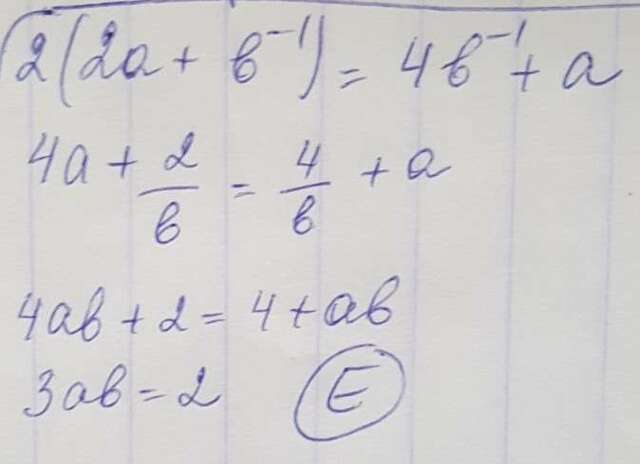 2(2a + b⁻¹) = 4b⁻¹ + a
4a + 2/b = 4/b + a
4ab + 2 = 4 + ab
3ab = 2 E